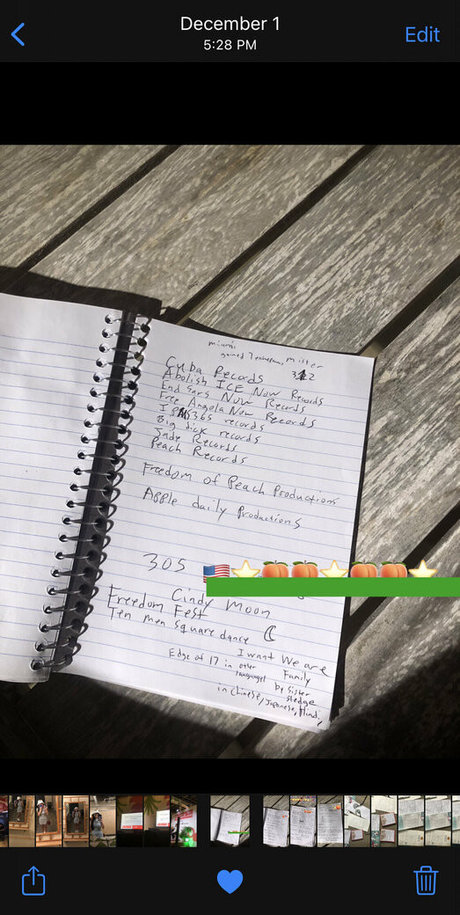 December 1
Edit
5:28 PM
miami
gained 7 miller
312
Cuba Records
Abolish ICE Now Records
End Sars Now Records
Free Angela Now Records
records
Big dick records
Jade Records
Peach Records
Freedom of Peach Productions
Apple daily Productions
305 🇺🇸⭐🍑🍑⭐🍑🍑⭐
Cindy Moon
Freedom Fest
Ten men square dance
I want We are
Family
by Sister
Sledge
Edge of 17 in other
languages
in Chinese, Japanese, Hindi,